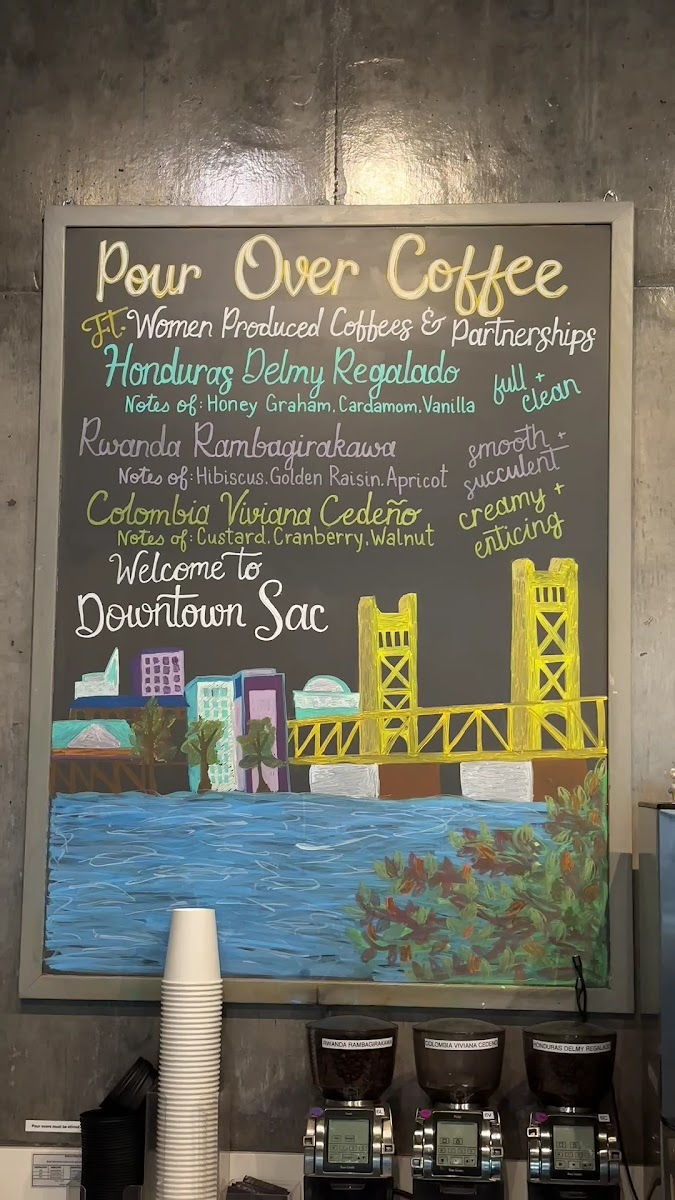 Pour Over Coffee
Ft. Women Produced Coffees & Partnerships
Honduras Delmy Regalado
Notes of: Honey Graham, Cardamom, Vanilla
full + clean
Rwanda Rambagirakawa
Notes of: Hibiscus, Golden Raisin, Apricot
smooth + succulent
Colombia Viviana Cedeño
Notes of: Custard, Cranberry, Walnut
creamy + enticing
Welcome to
Downtown Sac
RWANDA RAMBAGIRAKAWA
COLOMBIA VIVIANA CEDENO
HONDURAS DELMY REGALADO